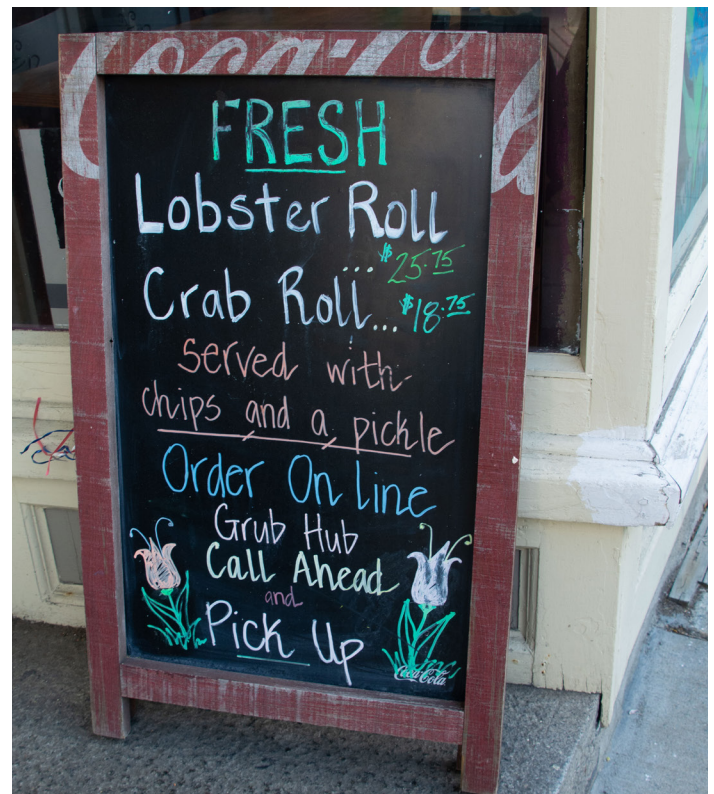 Coca-Cola
FRESH
Lobster Roll
... $25.75
Crab Roll... $18.75
served with
chips and a pickle
Order On line
Grub Hub
Call Ahead
and
Pick Up
Coca-Cola